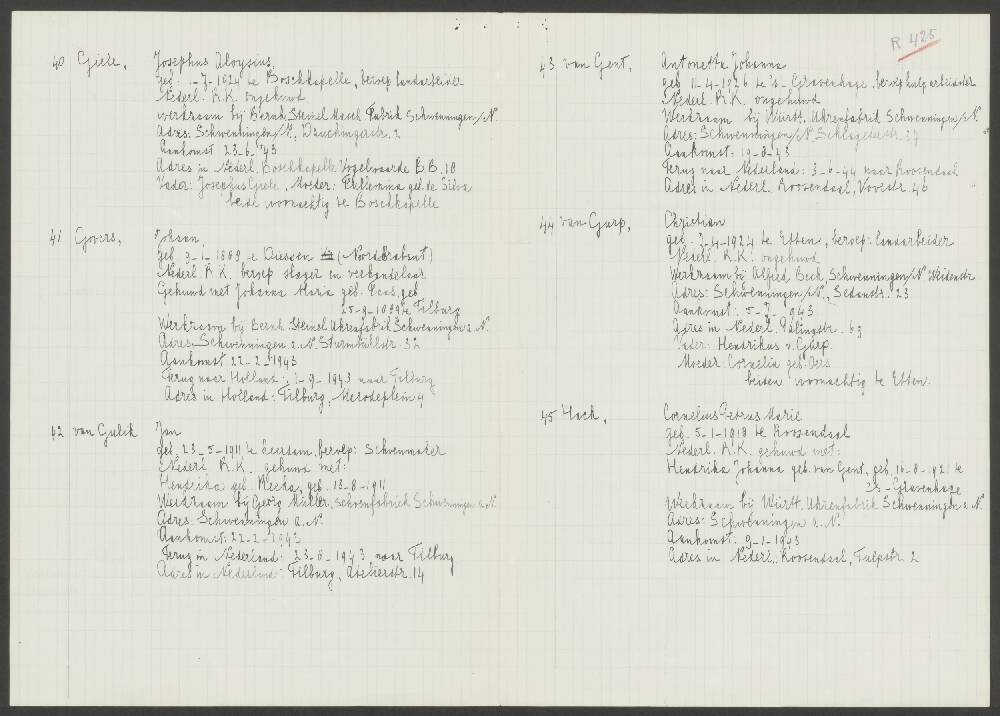 R 425
40 Giele, Josephus Aloysius,
geb. -7-1924 te Boschkapelle, beroep landarbeider
Nederl. R.K. ongehuwd
werkzaam bij Bernh. Steinel Masch. Fabrik Schwenningen/N.
Adres: Schwenningen/N.,
Aankomst 23-6-'43
Adres in Nederl. Boschkapelle Vogelwaarde B.B. 10
Vader: Josephus Giele, Moeder: Philomina geb. de Silva
beide woonachtig te Boschkapelle
41 Govers, Johann,
geb. 3-1-1889 te Diessen (Noord Brabant)
Nederl. R.K. beroep slager en veehandelaar
Gehuwd met Johanna Maria geb. geb.
te Tilburg
Werkzaam bij Bernh. Steinel Uhrenfabrik Schwenningen a. N.
Adres Schwenningen a. N. Sturmbühlstr. 32
Aankomst 22-2-1943
Terug naar Holland: 1-9-1943 naar Tilburg
Adres in Holland: Tilburg, Merodeplein 4
42 van Gulik Jan
geb. 23-5-1911 te Leersam, beroep: Schoenmaker
Nederl. R.K. gehuwd met:
Hendrika geb. geb. 13-8-1911
Werkzaam bij Georg Müller, Schoenfabriek Schwenningen a. N.
Adres: Schwenningen a. N.
Aankomst: 22-2-1943
Terug in Nederland: 23-6-1943 naar Tilburg
Adres in Nederland: Tilburg, Atelierstr. 14
43 van Gent, Antonetta Johanna
geb. 11-4-1926 te 's-Gravenhage, beroep hulparbeidster
Nederl. R.K. ongehuwd
Werkzaam bij Württ. Uhrenfabrik Schwenningen/N.
Adres: Schwenningen/N. Schlageterstr. 37
Aankomst: 19-8-43
Terug naar Nederland: 3-6-44 naar Roosendaal
Adres in Nederl. Roosendaal, Voorstr. 46
44 van Gurp, Christian
geb. 7-4-1924 te Etten, beroep: landarbeider
Nederl. R.K. ongehuwd
Werkzaam bij Alfred Beck, Schwenningen/N. Weidenstr
Adres: Schwenningen/N., Sedanstr. 23
Aankomst: 5-7-1943
Adres in Nederl. Palingstr. 63
Vader: Hendrikus v. Gurp.
Moeder: Cornelia geb.
beiden woonachtig te Etten.
45 Hack, Cornelius Petrus Marie
geb. 5-1-1918 te Roosendaal
Nederl. R.K. gehuwd met:
Hendrika Johanna geb. van Gent, geb. 16-8-1921 te
's-Gravenhage
Werkzaam bij Württ. Uhrenfabrik Schwenningen a. N.
Adres: Schwenningen a. N.
Aankomst: 9-1-1943
Adres in Nederl. Roosendaal, Tulpstr. 2